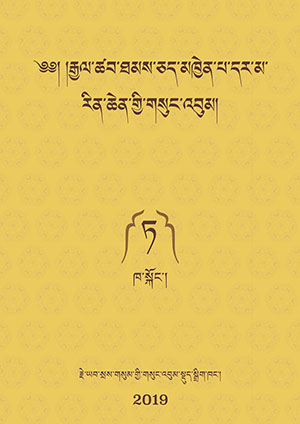 ༄༅། །རྒྱལ་ཚབ་ཐམས་ཅད་མཁྱེན་པ་དར་མ་
རིན་ཆེན་གྱི་གསུང་འབུམ།
ཏ
ཁ་སྐོང་།
རྗེ་ཡབ་སྲས་གསུམ་གྱི་གསུང་འབུམ་སྡུད་སྒྲིག་ཁང་།
2019